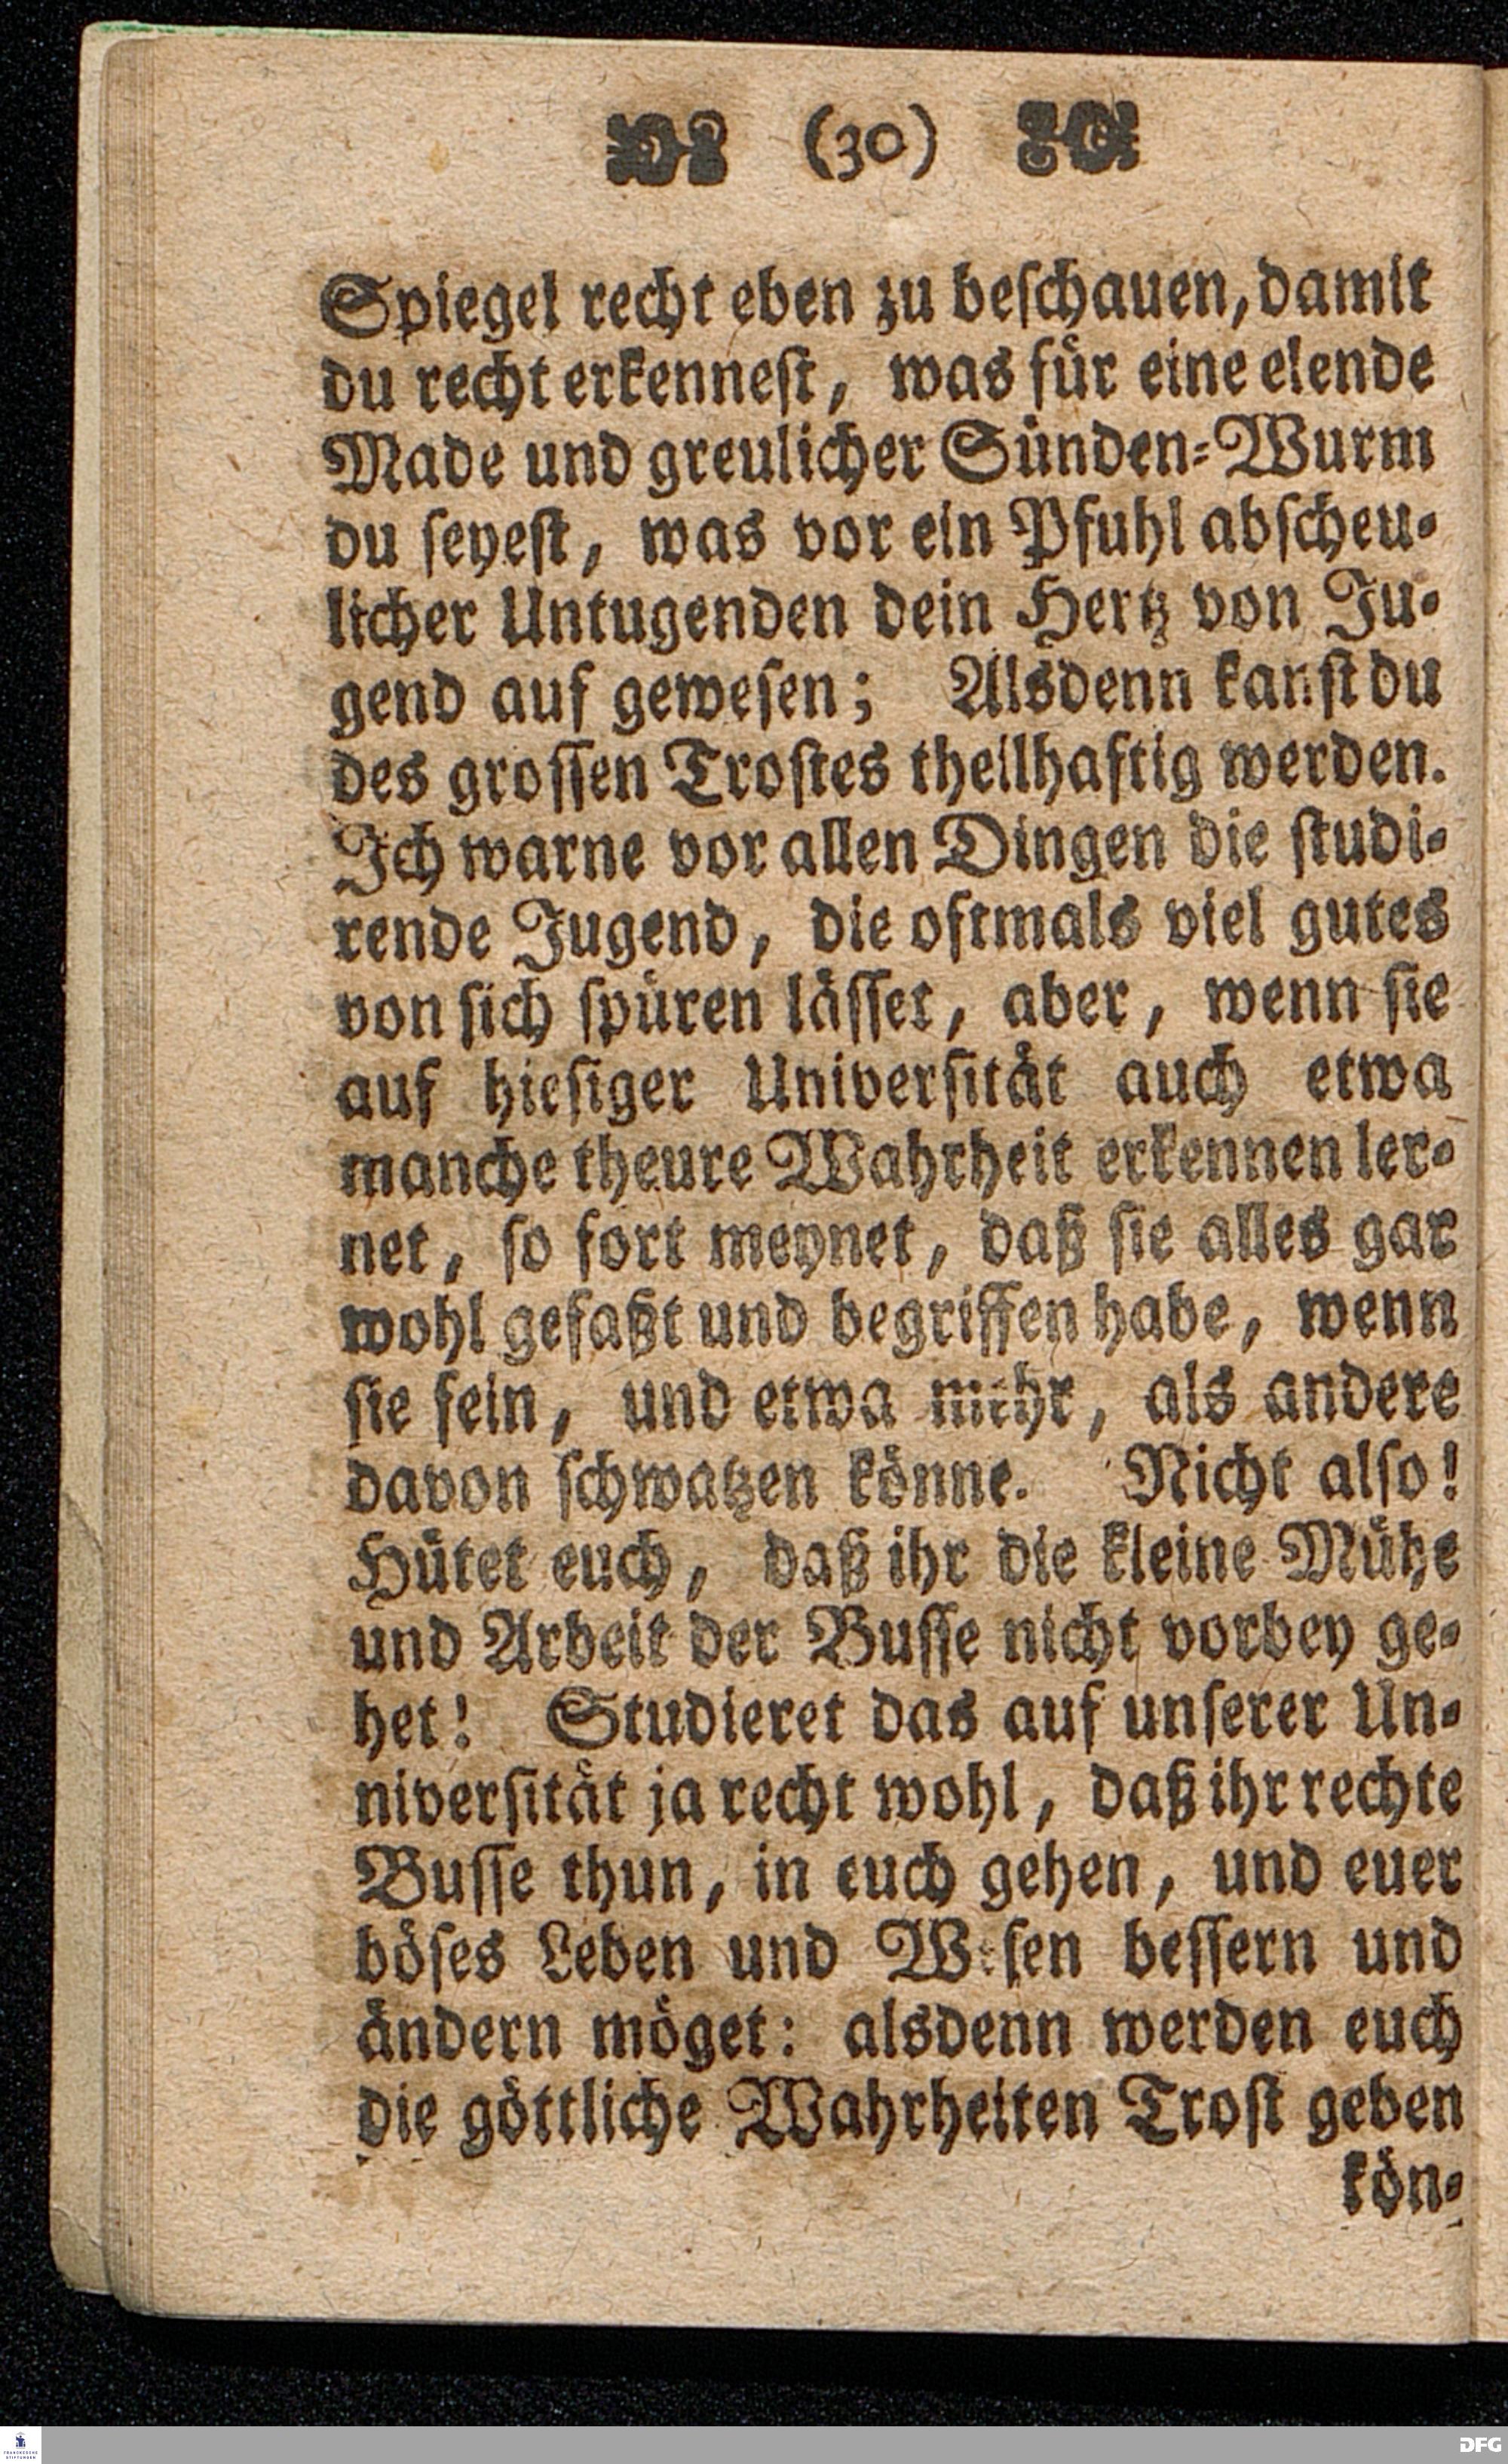 (30)
Spiegel recht eben zu beschauen, damit
du recht erkennest, was für eine elende
Made und greulicher Sünden-Wurm
du seyest, was vor ein Pfuhl abscheu-
licher Untugenden dein Hertz von Ju-
gend auf gewesen; Alsdenn kanst du
des grossen Trostes theilhaftig werden.
Ich warne vor allen Dingen die studi-
rende Jugend, die oftmals viel gutes
von sich spüren lässet, aber, wenn sie
auf hiesiger Universität auch etwa
manche theure Wahrheit erkennen ler-
net, so fort meynet, daß sie alles gar
wohl gefaßt und begriffen habe, wenn
sie fein, und etwa mehr, als andere
davon schwatzen könne. Nicht also!
Hütet euch, daß ihr die kleine Mühe
und Arbeit der Busse nicht vorbey ge-
het! Studieret das auf unserer Un-
niversität ja recht wohl, daß ihr rechte
Busse thun, in euch gehen, und euer
böses Leben und Wesen bessern und
ändern möget: alsdenn werden euch
die göttliche Wahrheiten Trost geben
kön-
FRANCKESCHE
STIFTUNGEN
DFG